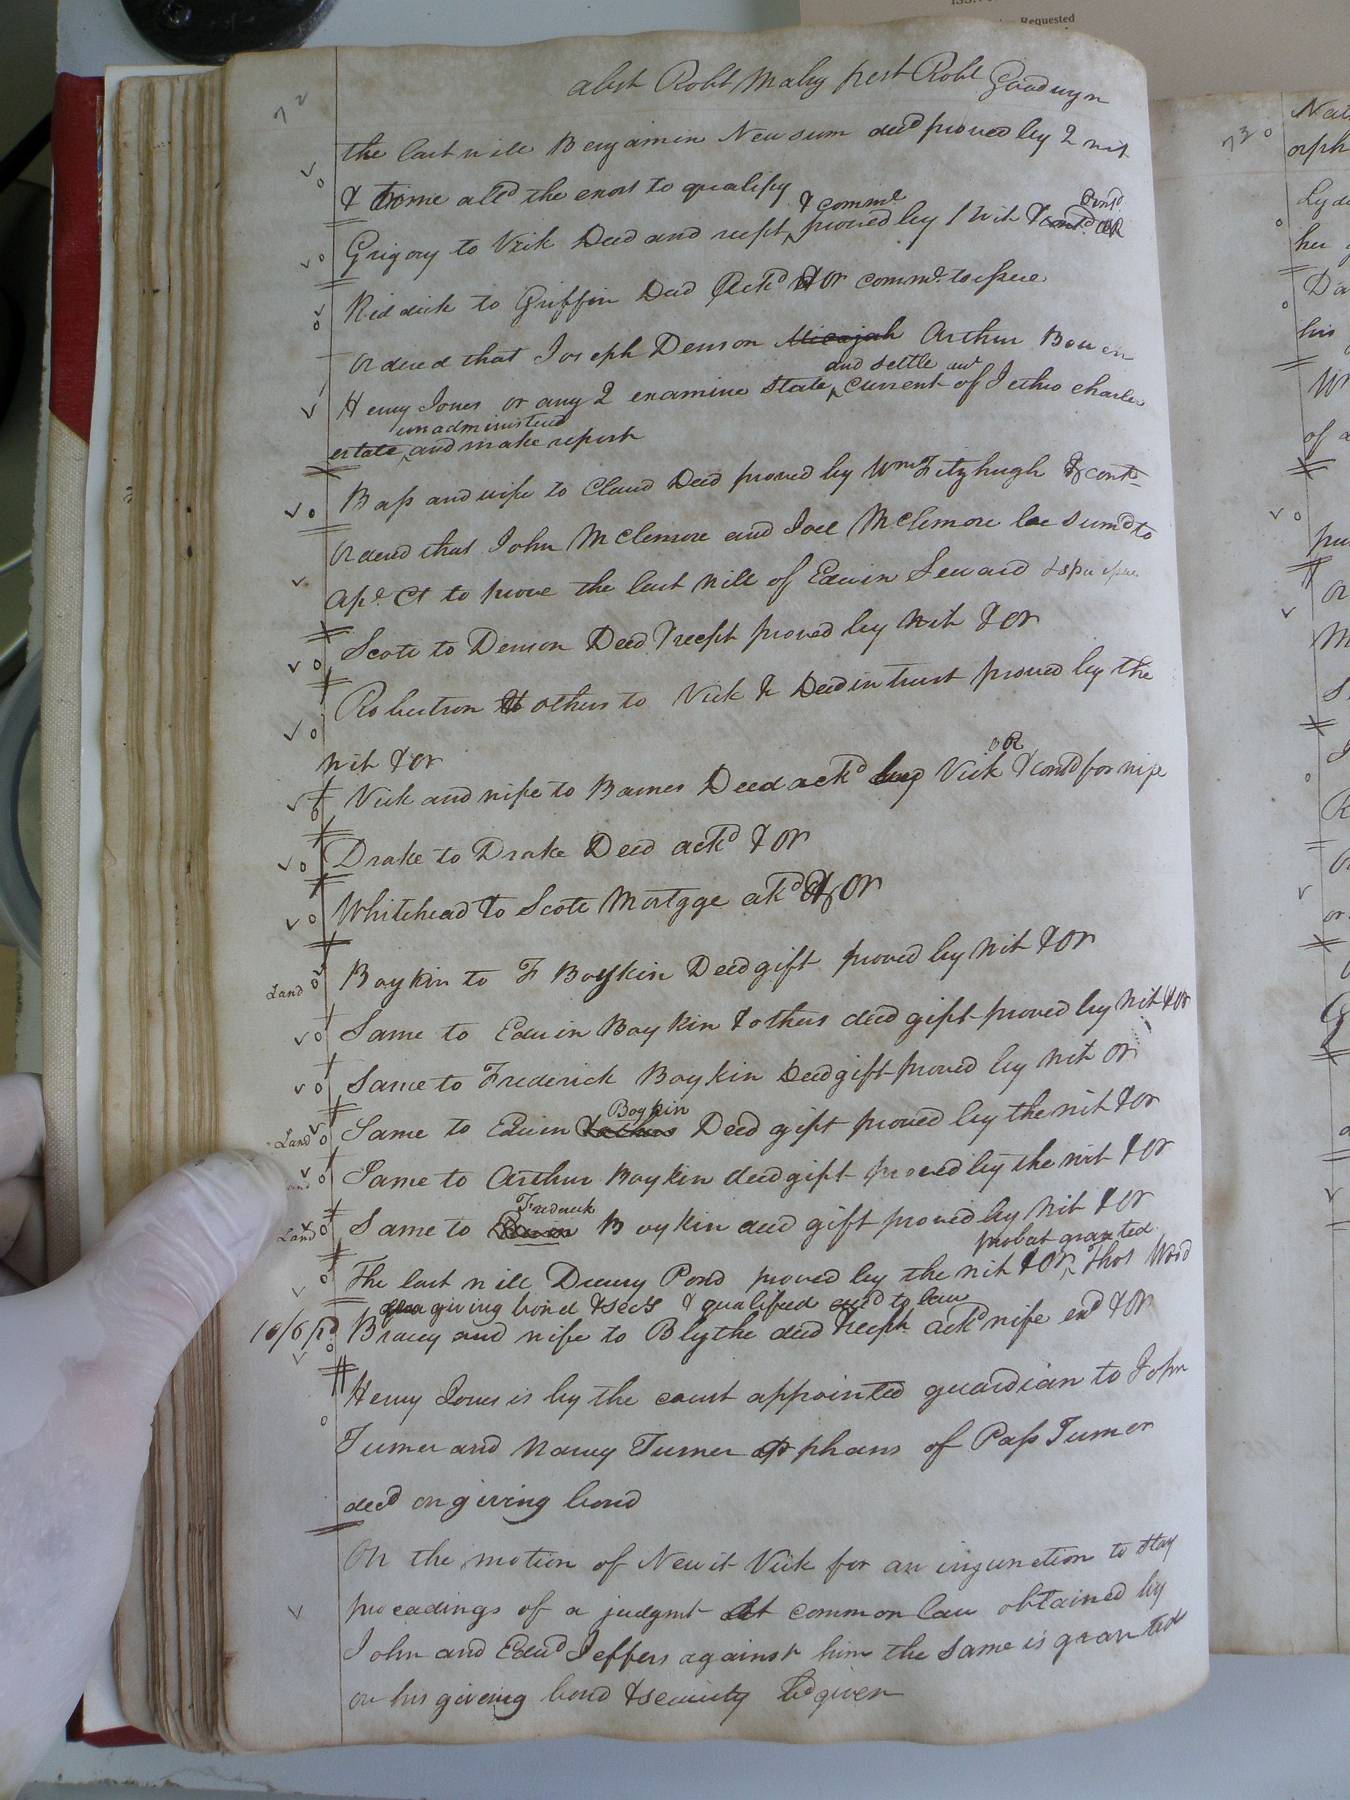 Requested
72
abst Robt Maby prest Robt Goodwyn
the last will Benjamin Newsum decd proved by 2 wit
& time alld the exors to qualify
& commd contd
Grigory to Vick Deed and recpt proved by 1 wit & contd OR
Riddick to Griffin Deed Ackd & Or commn. to issue
Ordered that Joseph Denson Micajah Arthur Bowen
and settle act
Henry Jones or any 2 examine state current of Jethro Charles
unadministered
estate and make report
Bass and wife to Claud Deed proved by Wm Fitzhugh & contd
Ordered that John McLemore and Joel McLemore be sumd to
apr. Ct to prove the last will of Edwin Seward
Scott to Denson Deed & recpt proved by wit & Or
Robertson & others to Vick & Deed in trust proved by the
wit & Or
OR
Vick and wife to Barnes Deed ackd by Vick & contd for wife
Drake to Drake Deed ackd & Or
Whitehead to Scott Mortgge akd & Or
Land Boykin to F Boykin Deed gift proved by wit & Or
Same to Edwin Boykin & others deed gift proved by wit & Or
Same to Frederick Boykin Deed gift proved by wit Or
Boykin
Land Same to Edwin & others Deed gift proved by the wit & Or
Same to Arthur Boykin deed gift proved by the wit & Or
Frederick
Land Same to Edwin Boykin deed gift proved by wit & Or
probat granted
The last will Drewry Pond proved by the wit & Or, Thos Wood
giving bond & secy & qualified accd to law
10/6/12 Bracey and wife to Blythe deed & recpt ackd wife exd & Or
Henry Jones is by the court appointed guardian to John
Turner and Nancy Turner orphans of Pass Turner
decd on giving bond
On the motion of Newit Vick for an injunction to stay
proceadings of a judgmt at common law obtained by
John and Edwd Jeffers against him the same is granted
on his giveing bond & security bd given
73
orph
her
his
of